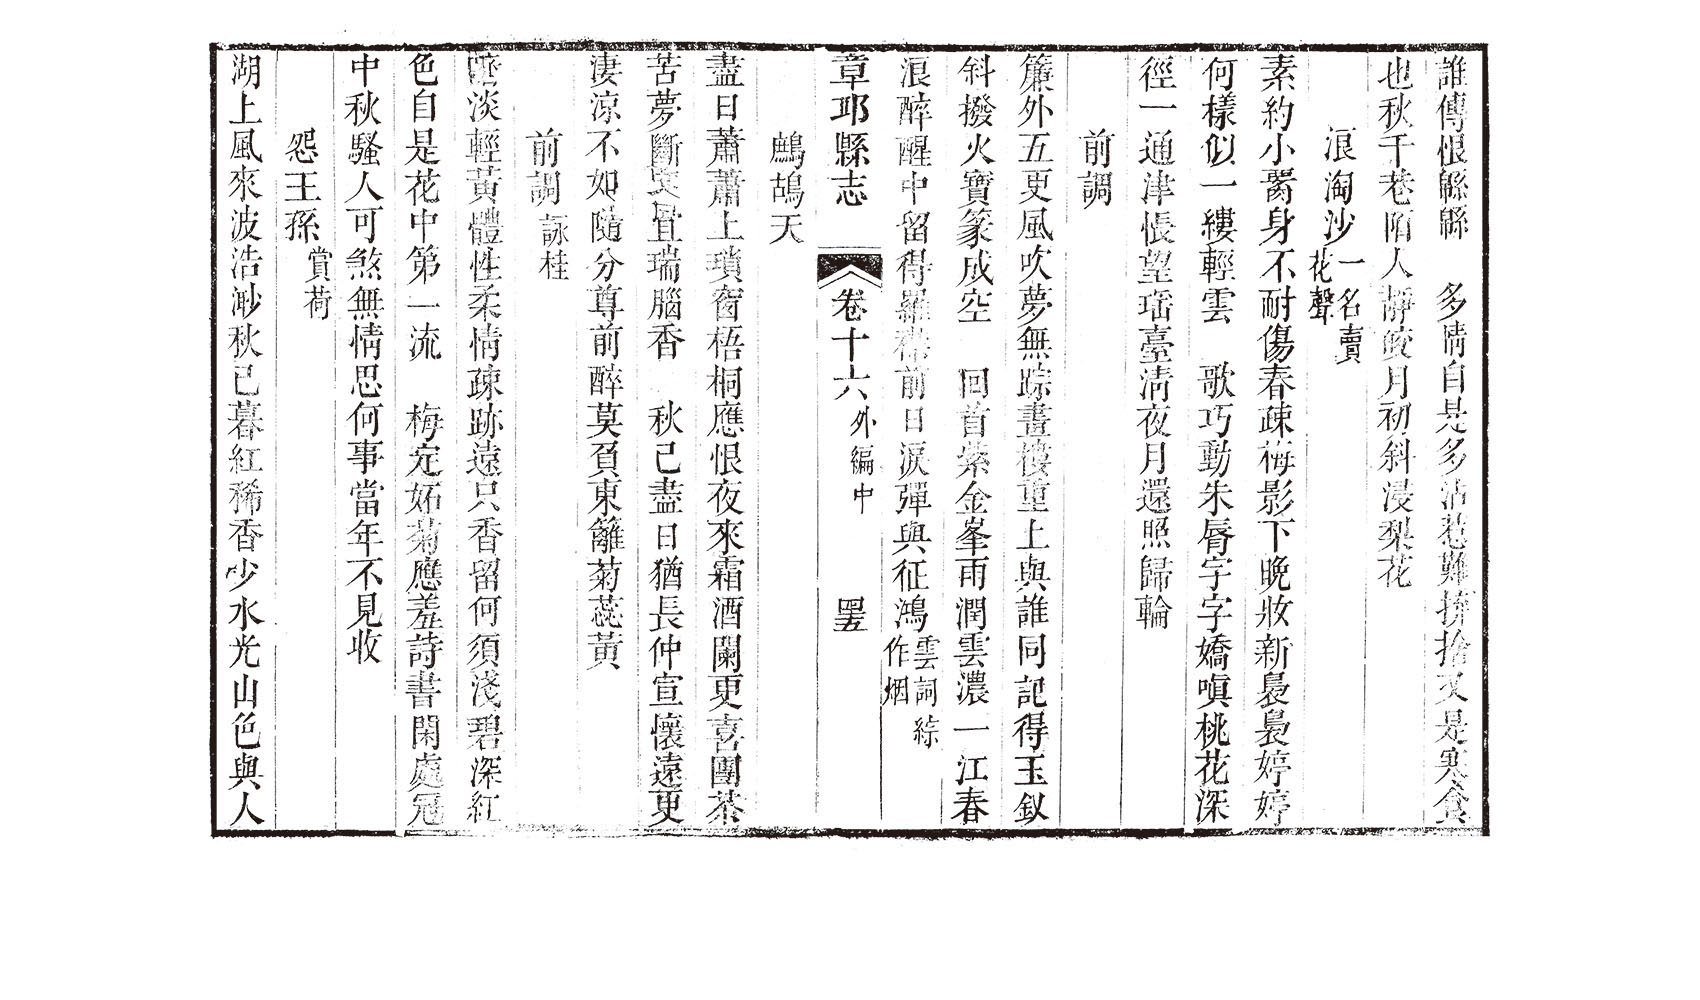 誰傳恨緜緜　多情自是多沾惹難捹捨又是寒食
也秋千巷陌人靜皎月初斜浸梨花
浪淘沙一名賣花聲
素約小𦝫身不耐傷春疎梅影下晚妝新裊裊婷婷
何樣似一縷輕雲　歌巧動朱脣字字嬌嗔桃花深
徑一通津悵望瑶臺淸夜月還照歸輪
前調
簾外五更風吹夢無踪畫樓重上與誰同記得玉釵
斜撥火寶篆成空　回首紫金峯雨潤雲濃一江春
浪醉醒中留得羅襟前日淚彈與征鴻雲詞綜作烟
章邱縣志　卷十六外編中　罢五
鷓鴣天
盡日蕭蕭上瑣窗梧桐應恨夜來霜酒闌更喜團茶
苦夢斷宜瑞腦香　秋已盡日猶長仲宣懷遠更
凄涼不如隨分尊前醉莫負東籬菊蕊黃
前調詠桂
淡輕黃體性柔情疎跡遠只香留何須淺碧深紅
色自是花中第一流　梅定妬菊應羞詩書閑處冠
中秋騷人可煞無情思何事當年不見收
怨王孫賞荷
湖上風來波浩渺秋已暮紅稀香少水光山色與人